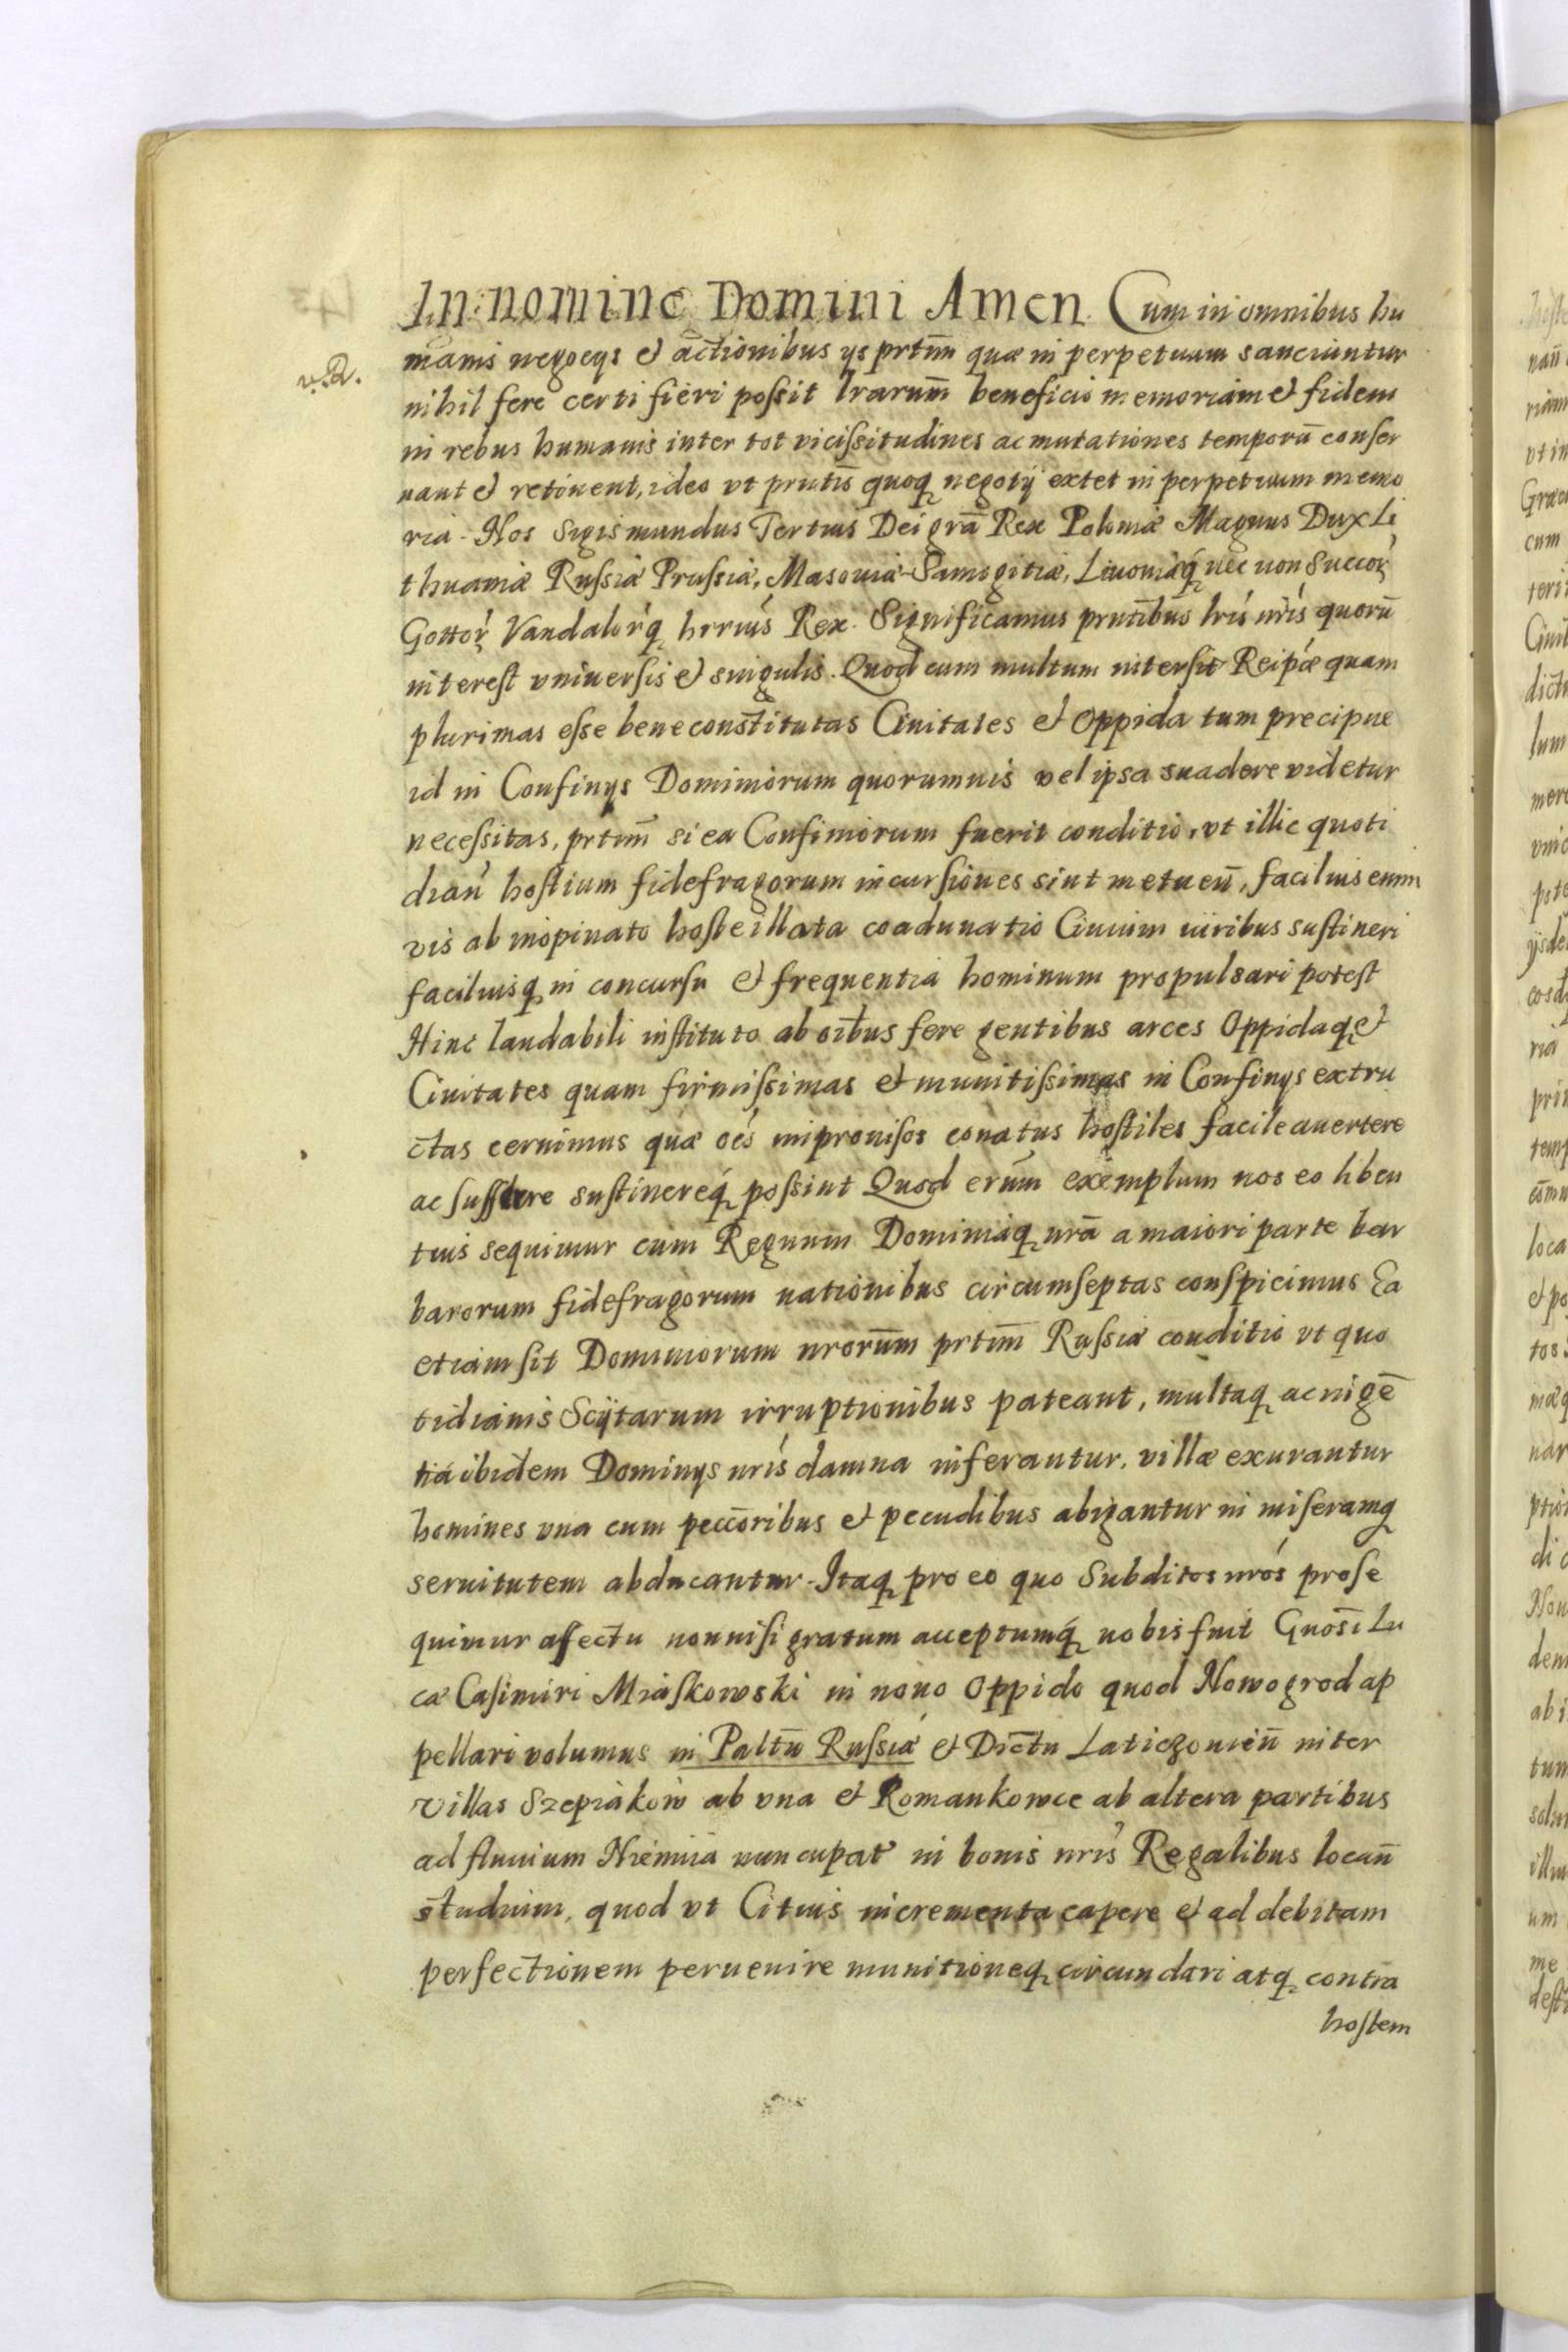 In nomine Domini Amen. Cum in omnibus hu
manis negocys et actionibus ys prtm̄ quæ in perpetuum sanciuntur
nihil fere certi fieri possit lrarum̄ beneficio memoriam et fidem
in rebus humanis inter tot vicissitudines ac mutationes temporū conser
uant et retinent, ideo vt prntis̄ quoq negotÿ extet in perpetuum memo
ria. Nos Sigismundus Tertius Dei grā Rex Poloniæ Magnus Dux Li
thuaniæ Russiæ Prussiæ, Masouiæ Samogitiæ, Liuoniæq́ nec non Sueccoŕ
Gottoŕ Vandaloŕq hrrius Rex. Significamus prntib̄us lris nris quorū
interest vniuersis et singulis. Quod cum multum intersit Reipæ quam
plurimas esse bene constitutas Ciuitates et Oppida tum precipue
id in Confinys Dominiorum quorumuis vel ipsa suadere videtur
necessitas, prtim̄ si ea Confiniorum fuerit conditio, vt illic quoti
dian̄ hostium fidefragorum incursiones sint metuen̄, facilius enim
vis ab inopinato hoste illata coadunatio Ciuium uiribus sustineri
faciliusq in concursu et frequentia hominum propulsari potest
Hinc laudabili instituto ab oib̄us fere gentibus arces Oppidaq et
Ciuitates quam firmissimas et munitissimas in Confinys extru
ctas cernimus quæ oēs improuisos conatus hostiles facile auertere
ac sufferre sustinereq́ possint Quod erum exemplum nos eo liben
tius sequimur cum Regnum Dominiaq nrā a maiori parte bar
barorum fidefragorum nationibus circumseptas conspicimus Ea
etiam sit Dominiorum nrorum̄ prtim̄ Russiæ conditio vt quo
tidianis Scÿtarum irruptionibus pateant, multaq ac nigē
tia ibidem Dominys nris damna inferantur, villæ exurantur
homines vna cum peccoribus et pecudibus abigantur in miseramq
seruitutem abducantur. Itaq pro eo quo Subditos nros prose
quimur afectu nonnisi gratum acceptumq́ nobis fuit Gnosī Lu
cæ Casimiri Miaskowski in nouo Oppido quod Nowogrod ap
pellari volumus in Paltū Russiæ et Dictu Laticzouien̄ inter
Villas Szepiakow ab vna et Romankowce ab altera partibus
ad fluuium Niemiia nuncupat in bonis nris Regalibus locan̄
studium, quod vt Citius incrementa capere et ad debitam
perfectionem peruenire munitioneq circundari atq contra
hostem